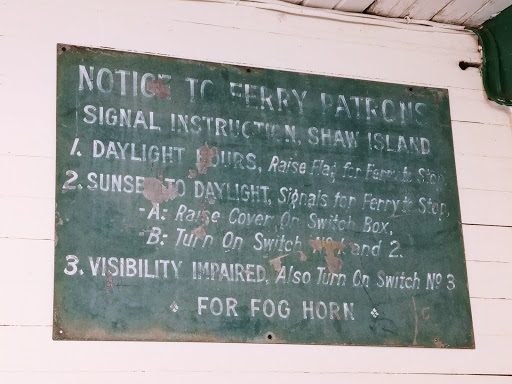 NOTICE TO FERRY PATRONS
SIGNAL INSTRUCTION, SHAW ISLAND
1. DAYLIGHT HOURS, Raise Flag for Ferry to Stop
2. SUNSET TO DAYLIGHT, Signals for Ferry to Stop,
-A: Raise Cover On Switch Box,
-B: Turn On Switch No 1 and 2.
3. VISIBILITY IMPAIRED, Also Turn On Switch No 3
FOR FOG HORN